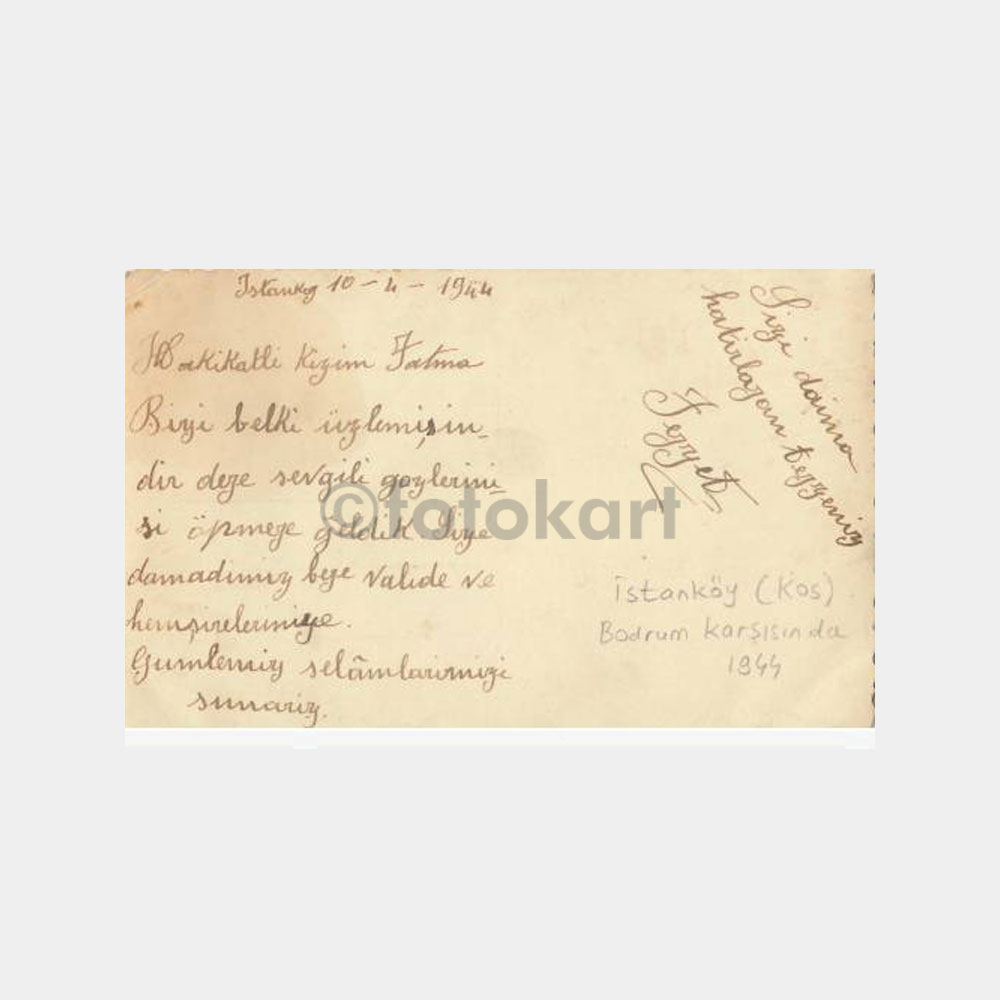 Istankoy 10 - 4 - 1944
Hakikatli kizim Fatma
Bizi belki üzlemişin_
dir deye sevgili gozlerini_
si öpmeye geldik Size
damadimiz beye valide ve
hemşireleriniye.
Gumlemiz selâmlarimizi
sunariz.
Sizi daima
hatirlayan teyzeniz
Feyzet
istanköy (Kos)
Bodrum karşısında
1944
©fotokart